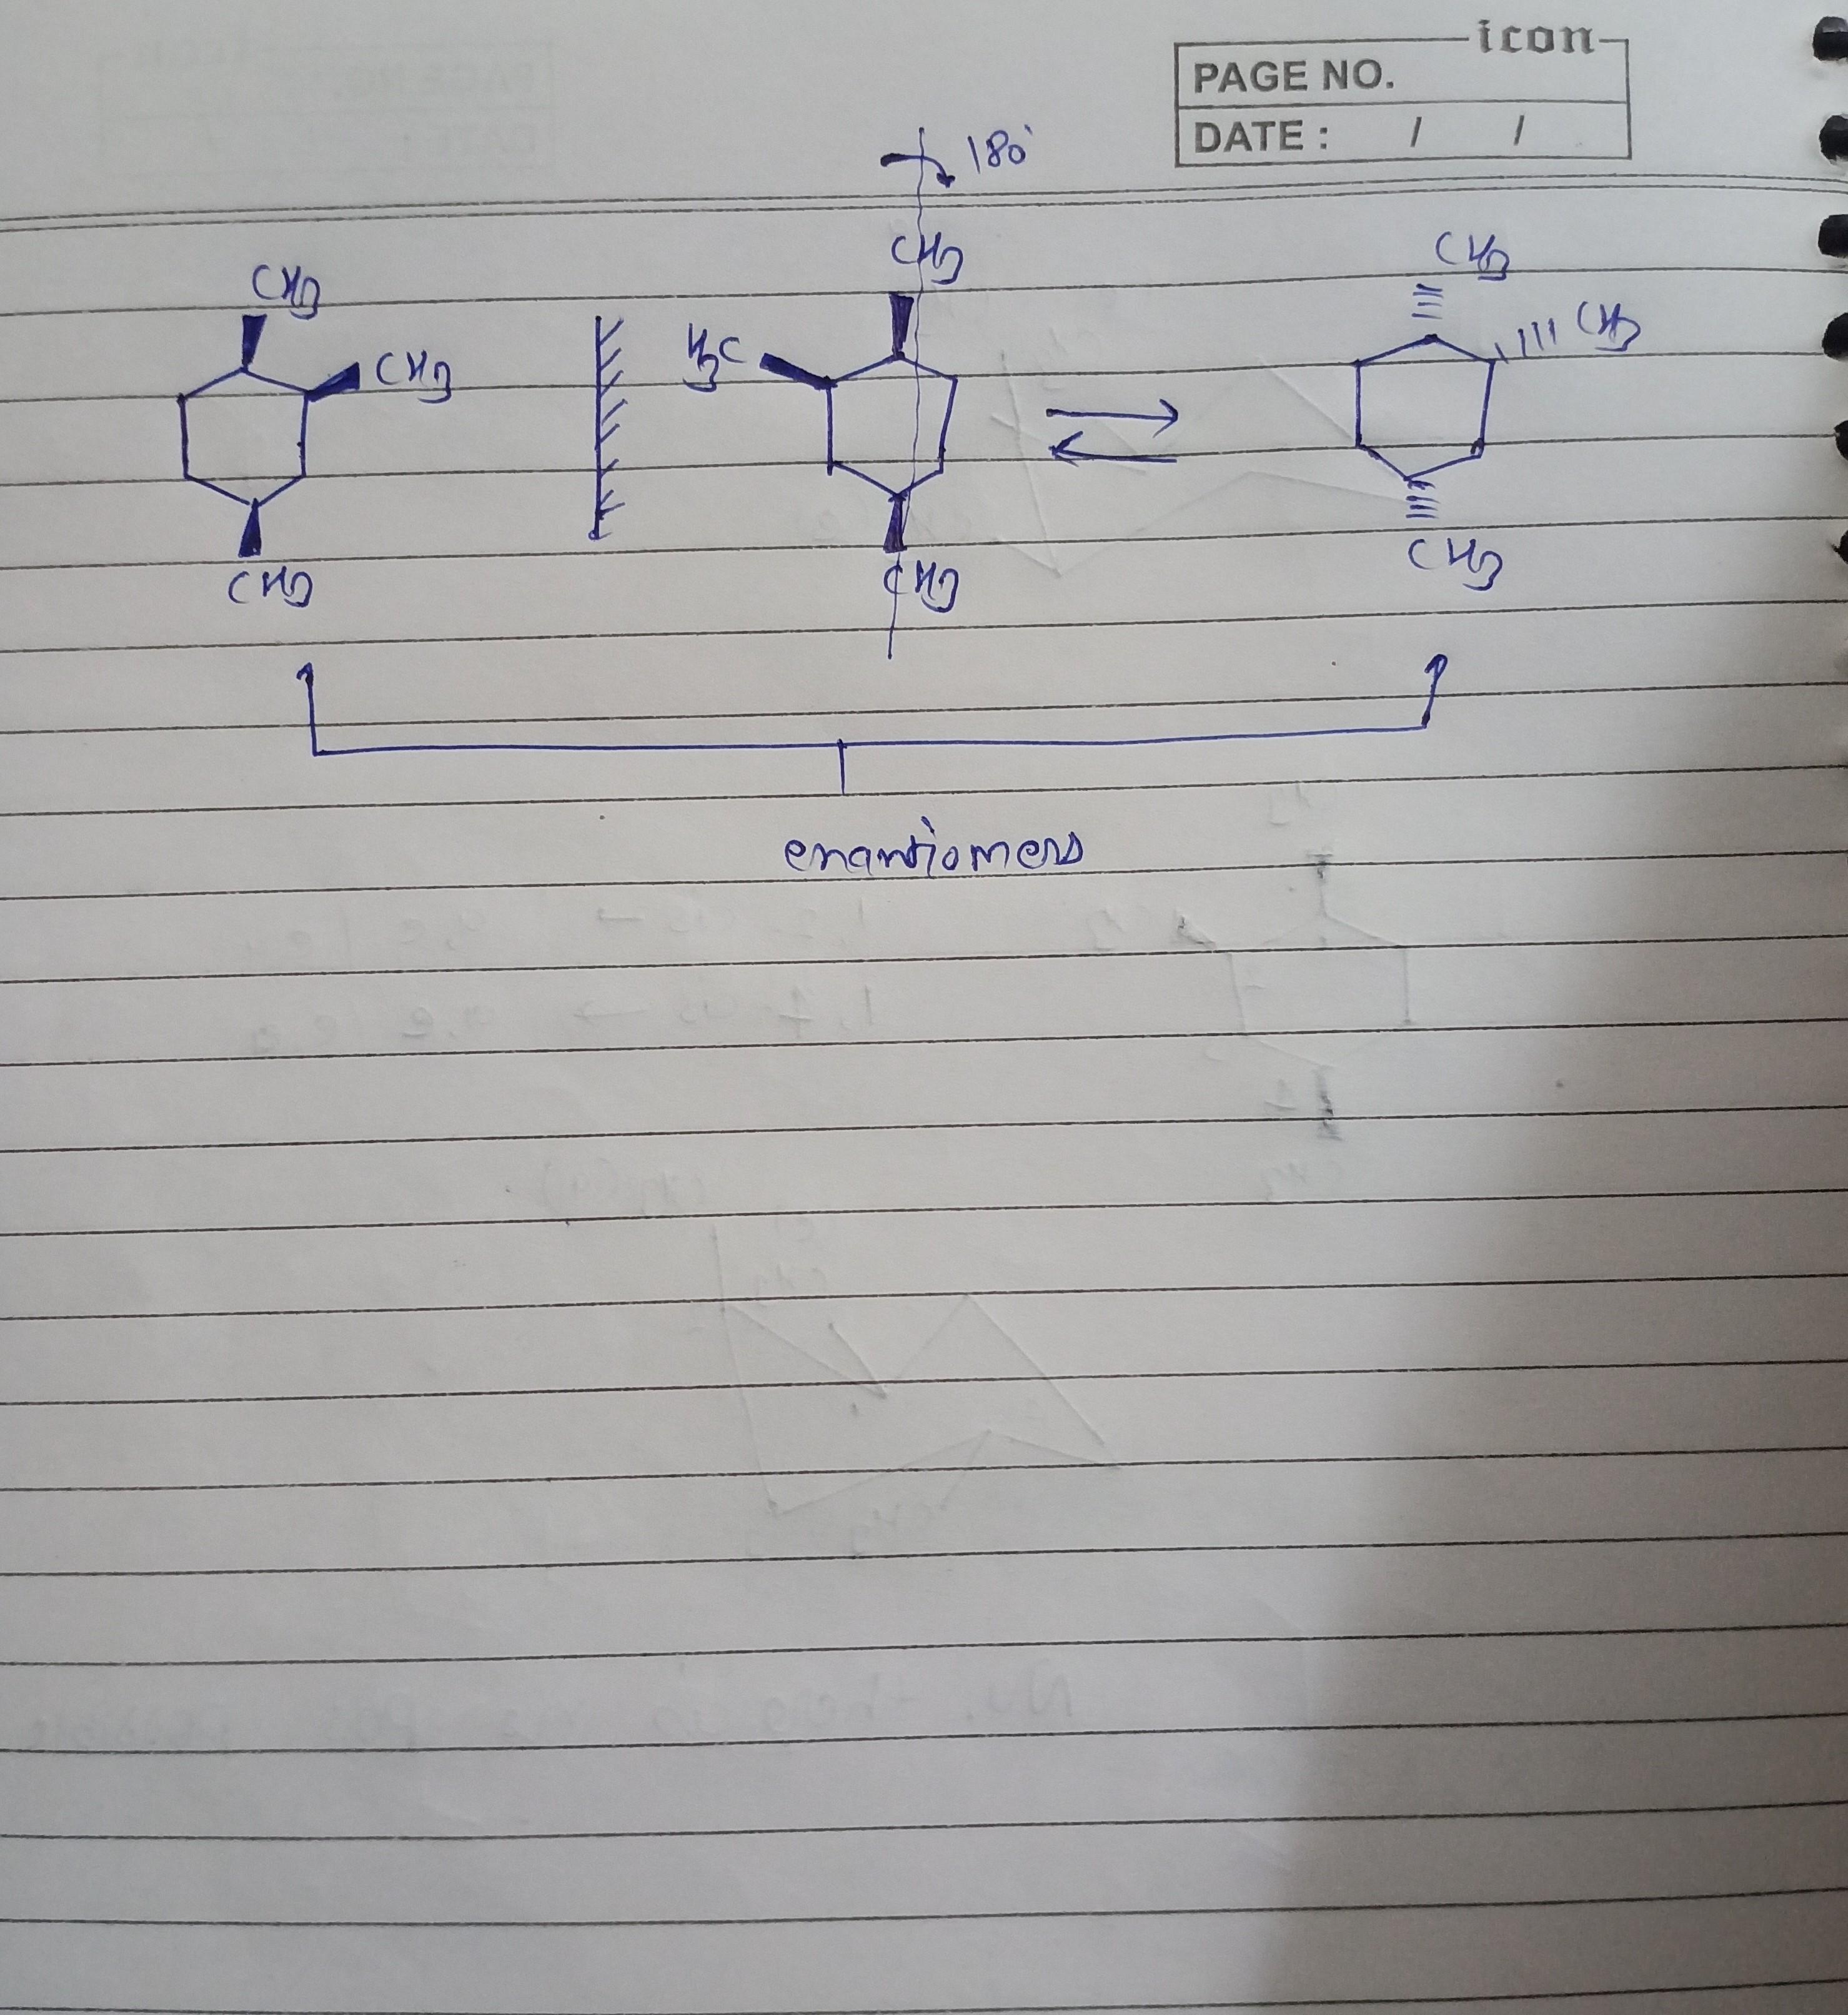 icon
PAGE NO.
DATE : / /
180°
CH3 CH3 CH3
H3C CH3 CH3
CH3 CH3 CH3
enantiomers